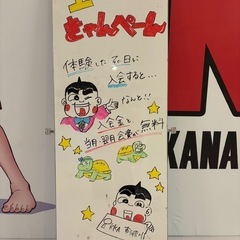 きゃんぺーん
体験した日に
入会すると…
なんと!!
入会金と
当月・翌月会費が無料
KANA